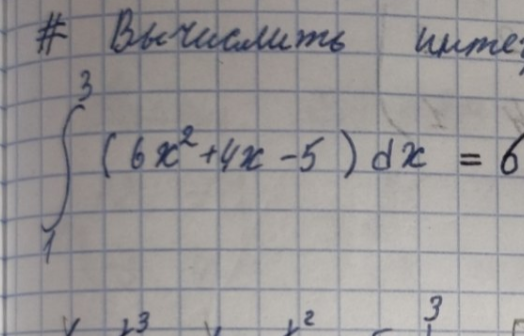 # Вычислить инте
3
∫ (6x²+4x-5) dx = 6
1
3